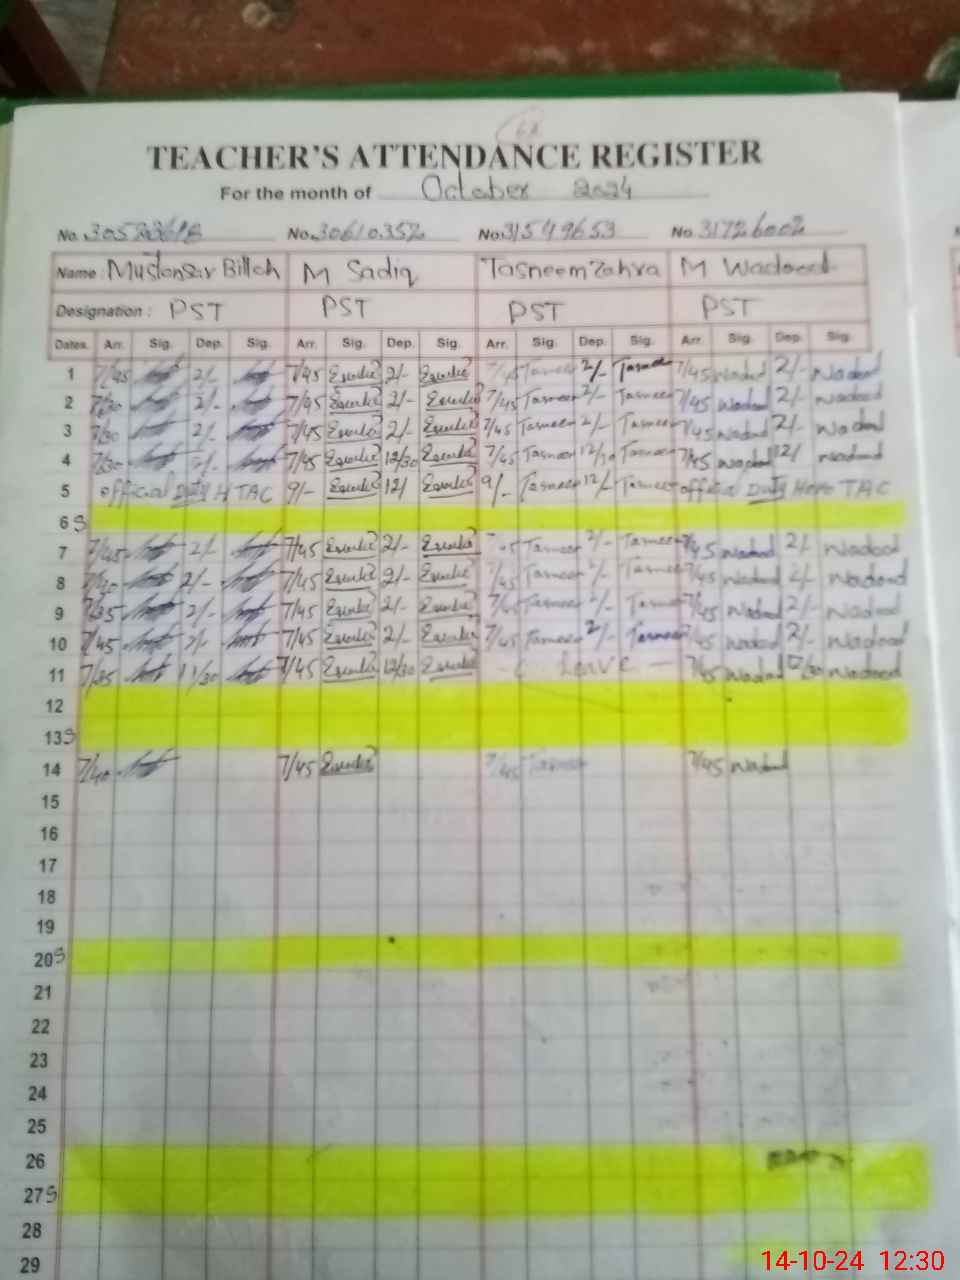 TEACHER'S ATTENDANCE REGISTER
For the month of October 2024
No. 30523618 No. 30610352 No. 31549653 No. 31726002
Name: Mustansar Billah M Sadiq Tasneem Zahra M Wadood
Designation: PST PST PST PST
Dates. Arr. Sig. Dep. Sig. Arr. Sig. Dep. Sig. Arr. Sig. Dep. Sig. Arr. Sig. Dep. Sig.
1 7/45 2/- 7/45 2/- Tasnee 2/- Tasnee 7/45 Wadood 2/- Wadood
2 7/30 2/- 7/45 2/- 7/45 Tasneem 2/- Tasnee 7/45 Wadood 2/- Wadood
3 7/30 2/- 7/45 2/- 7/45 Tasneem 2/- Tasnee 7/45 Wadood 2/- Wadood
4 7/30 7/45 12/30 7/45 Tasneem 12/30 Tasnee 7/45 Wadood 12/ Wadood
5 official Duty H TAC 9/- 12/ 9/- Tasneem 12/- Tasnee official Duty TAC
6 S
7 7/45 2/- 7/45 2/- Tasneem 2/- Tasnee 7/45 Wadood 2/- Wadood
8 2/- 7/45 2/- 7/45 Tasneem Tasnee 7/45 Wadood 2/- Wadood
9 7/35 2/- 7/45 2/- 7/45 Tasneem Tasnee 7/45 Wadood 2/- Wadood
10 7/45 2/- 7/45 2/- 7/45 Tasneem 2/- Tasnee 7/45 Wadood 2/- Wadood
11 7/35 11/30 7/45 12/30 Leave 7/45 Wadood 12/30 Wadood
12
13 S
14 7/40 7/45 7/45 Tasneem 7/45 Wadood
15
16
17
18
19
20 S
21
22
23
24
25
26
27 S
28
29
14-10-24 12:30